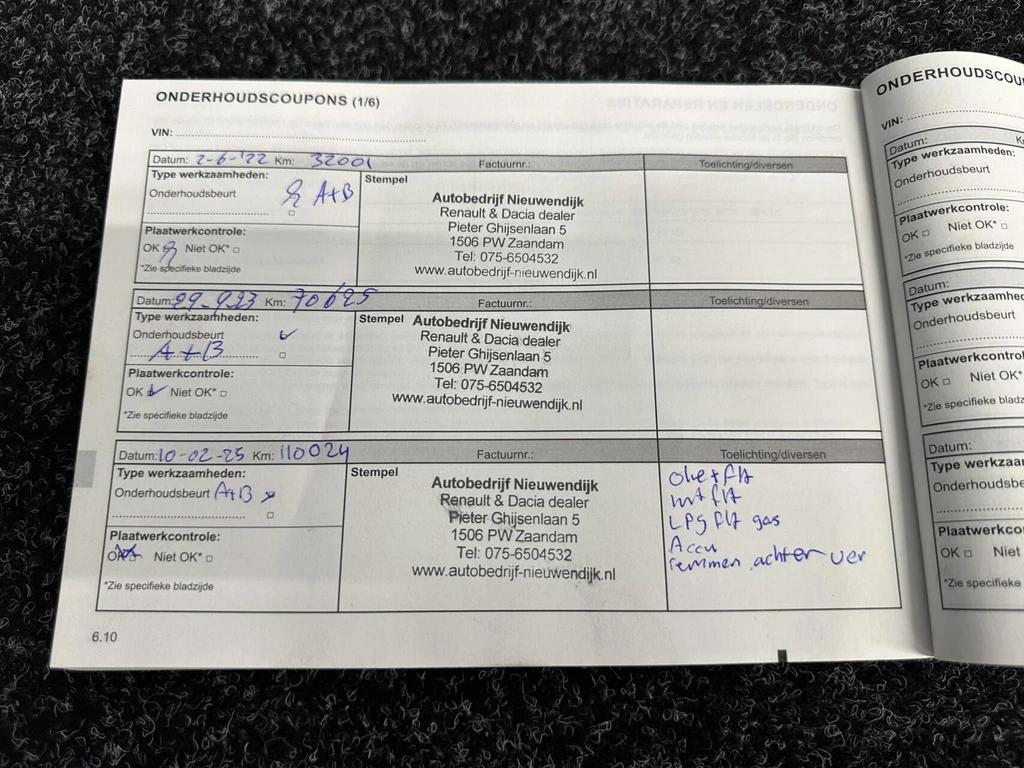 ONDERHOUDSCOUPONS (1/6)
VIN:
Datum: 2-6-'22 Km: 32001 Factuurnr.: Toelichting/diversen
Type werkzaamheden:
Onderhoudsbeurt A+B
Stempel
Autobedrijf Nieuwendijk
Renault & Dacia dealer
Pieter Ghijsenlaan 5
1506 PW Zaandam
Tel: 075-6504532
www.autobedrijf-nieuwendijk.nl
Plaatwerkcontrole:
OK □ Niet OK* □
*Zie specifieke bladzijde
Datum: 29-9-23 Km: 70695 Factuurnr.: Toelichting/diversen
Type werkzaamheden:
Onderhoudsbeurt
A+B
Stempel
Autobedrijf Nieuwendijk
Renault & Dacia dealer
Pieter Ghijsenlaan 5
1506 PW Zaandam
Tel: 075-6504532
www.autobedrijf-nieuwendijk.nl
Plaatwerkcontrole:
OK Niet OK* □
*Zie specifieke bladzijde
Datum: 10-02-25 Km: 110024 Factuurnr.: Toelichting/diversen
Type werkzaamheden:
Onderhoudsbeurt A+B
Stempel
Autobedrijf Nieuwendijk
Renault & Dacia dealer
Pieter Ghijsenlaan 5
1506 PW Zaandam
Tel: 075-6504532
www.autobedrijf-nieuwendijk.nl
Olie + flt
int flt
LPg flt gas
Accu
remmen achter ver
Plaatwerkcontrole:
OK Niet OK* □
*Zie specifieke bladzijde
6.10
ONDERHOUDSCOU
VIN:
Datum:
Type werkzaamheden:
Onderhoudsbeurt
Plaatwerkcontrole:
OK □ Niet OK* □
*Zie specifieke bladzijde
Datum:
Type werkzaamhed
Onderhoudsbeurt
Plaatwerkcontrol
OK □ Niet OK*
*Zie specifieke bladz
Datum:
Type werkzaa
Onderhoudsbe
Plaatwerkco
OK □ Niet
*Zie specifieke